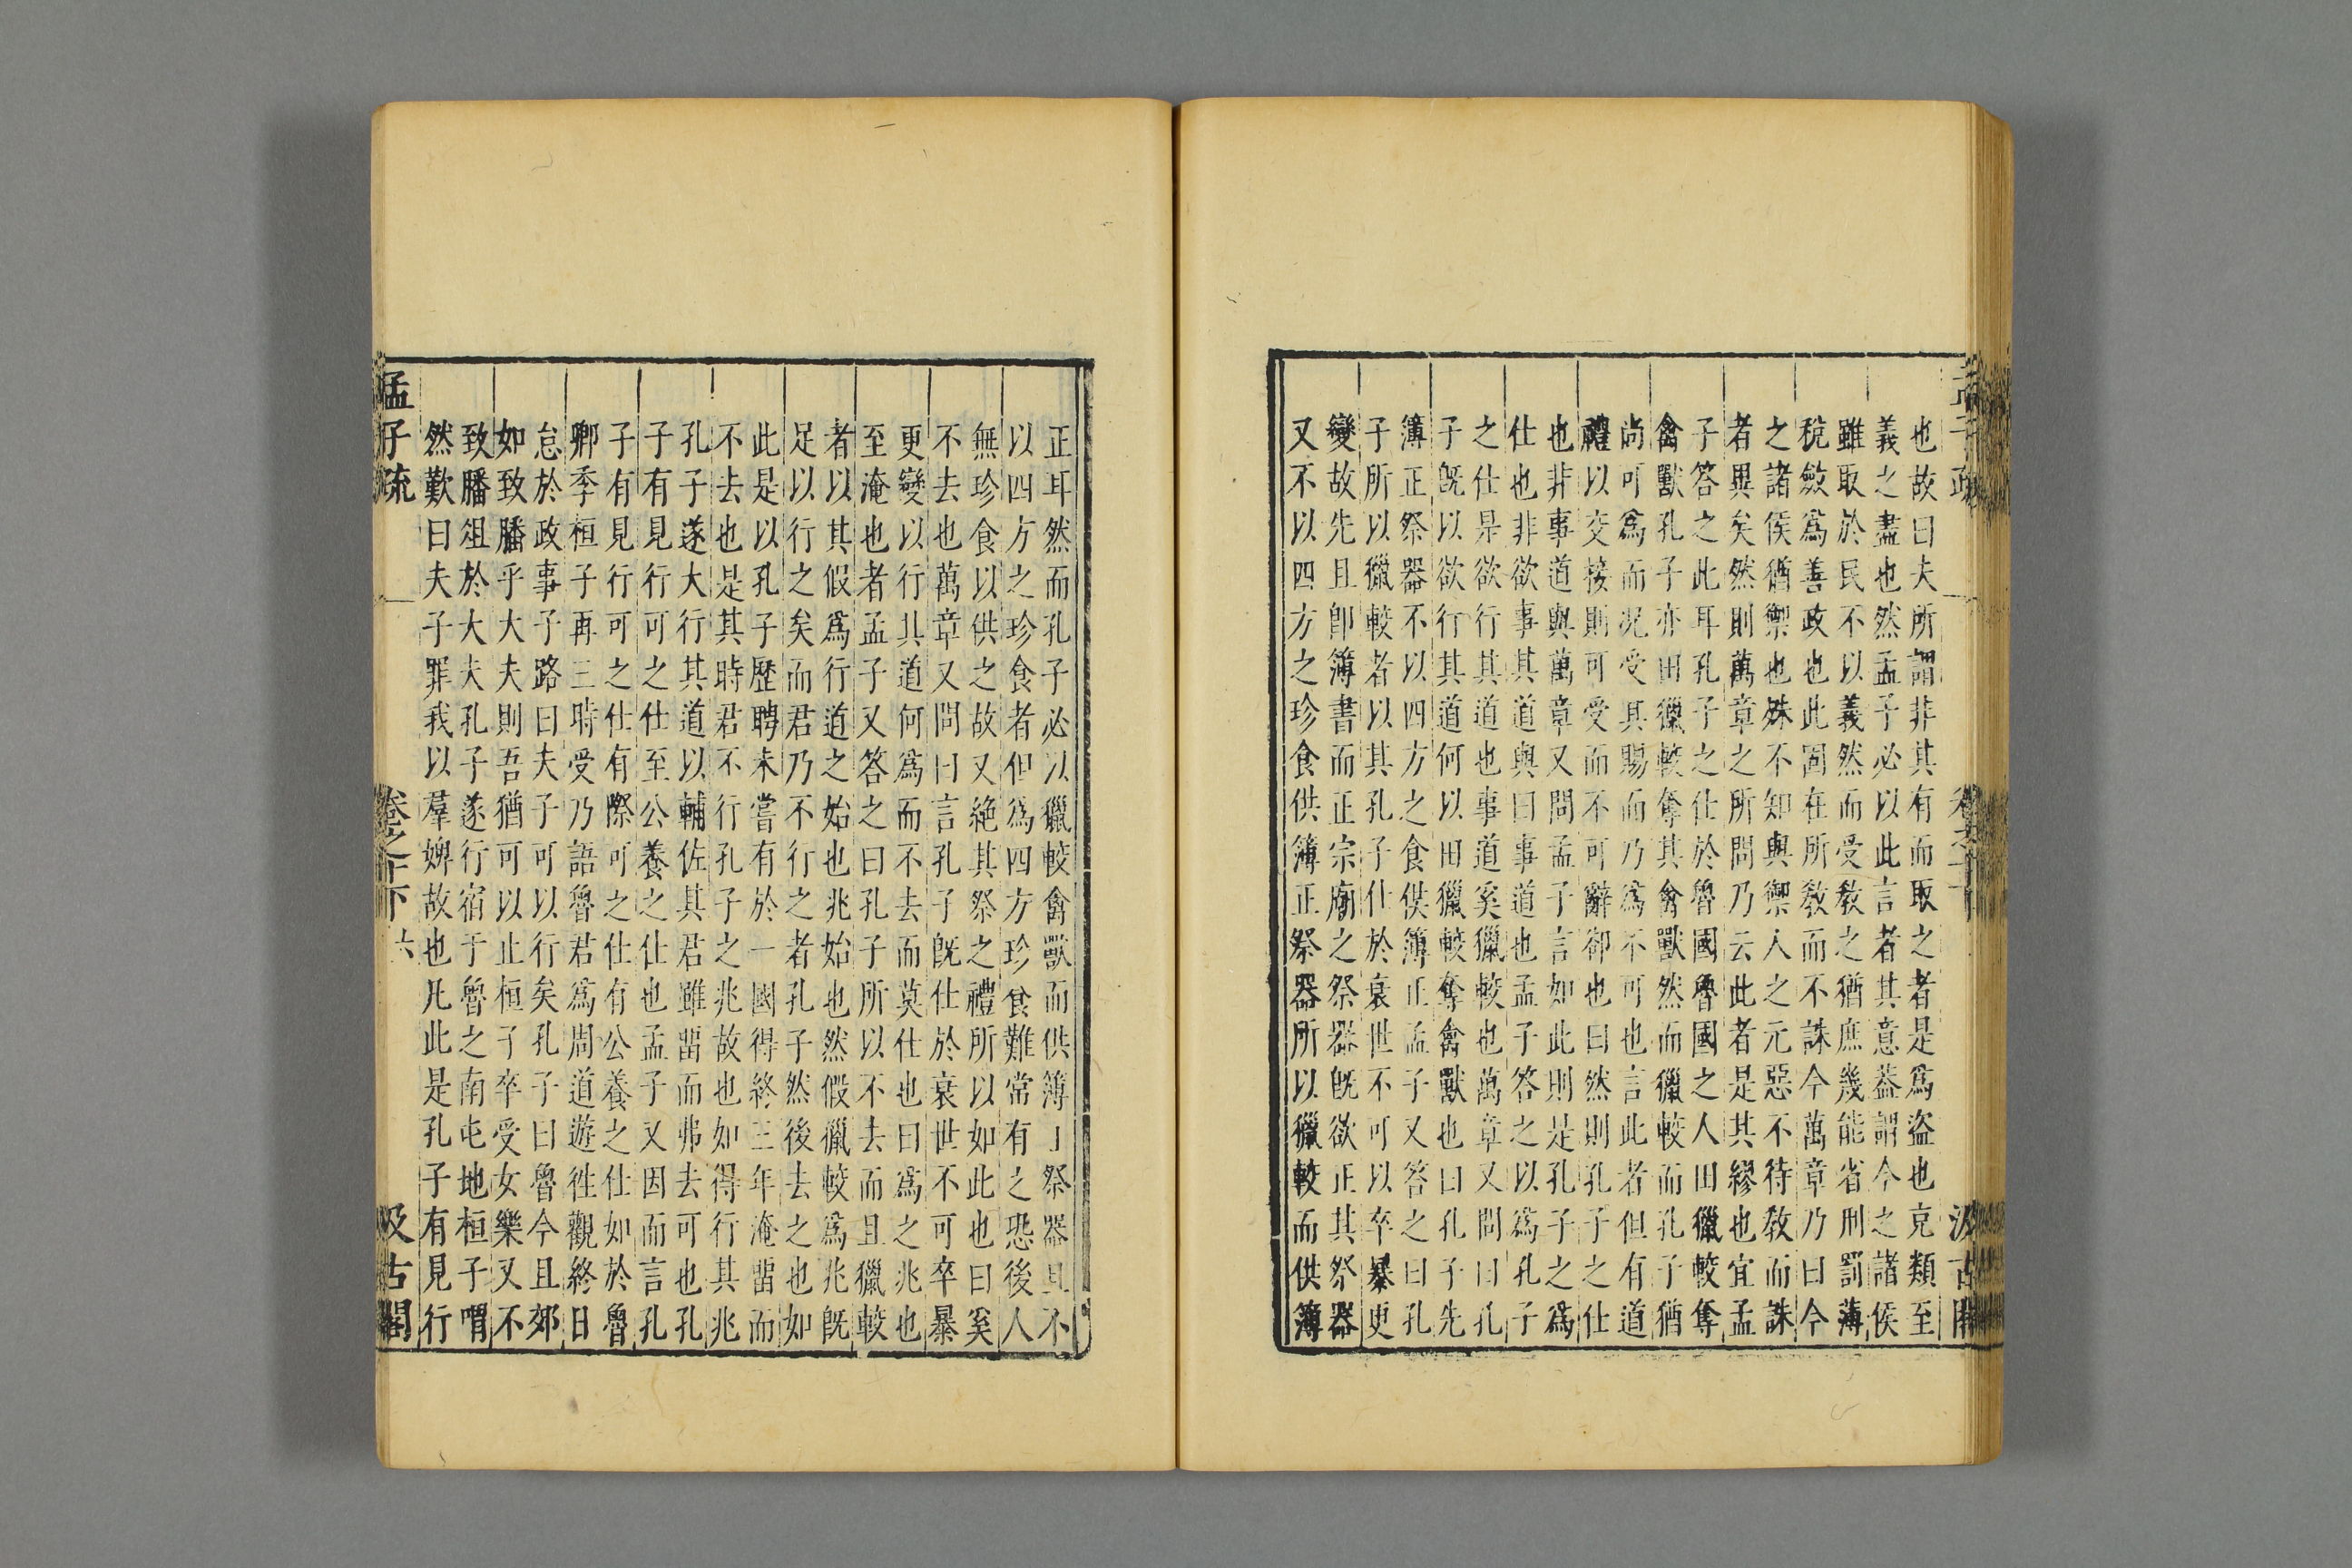 也故曰夫所謂非其有而取之者是爲盜也充類至
義之盡也然孟子必以此言者其意葢謂今之諸侯
雖取於民不以義然而受教之猶庶幾能省刑罰薄
稅斂爲善政也此固在所教而不誅今萬章乃曰今
之諸侯猶禦也殊不知與禦人之元惡不待教而誅
者異矣然則萬章之所問乃云此者是其繆也宜孟
子答之此耳孔子之仕於魯國魯國之人田獵較奪
禽獸孔子亦田獵較奪其禽獸然而獵較而孔子猶
尚可爲而況受其賜而乃爲不可也言此者但有道
禮以交接則可受而不可辭卻也曰然則孔子之仕
也非事道與萬章又問孟子言如此則是孔子之爲
仕也非欲事其道與曰事道也孟子答之以爲孔子
之仕是欲行其道也事道奚獵較也萬章又問曰孔
子旣以欲行其道何以田獵較奪禽獸也曰孔子先
簿正祭器不以四方之食供簿正孟子又答之曰孔
子所以獵較者以其孔子仕於衰世不可以卒暴更
變故先且卽簿書而正宗廟之祭器旣欲正其祭器
又不以四方之珍食供簿正祭器所以獵較而供簿
正耳然而孔子必以獵較禽獸而供簿正祭器且不
以四方之珍食者但爲四方珍食難常有之恐後人
無珍食以供之故又絶其祭之禮所以如此也曰奚
不去也萬章又問曰言孔子旣仕於衰世不可卒暴
更變以行其道何爲而不去而莫仕也曰爲之兆也
至淹也者孟子又答之曰孔子所以不去而且獵較
者以其假爲行道之始也兆始也然假獵較爲兆旣
足以行之矣而君乃不行之者孔子然後去之也如
此是以孔子歷聘未嘗有於一國得終三年淹畱而
不去也是其時君不行孔子之兆故也如得行其兆
孔子遂大行其道以輔佐其君雖畱而弗去可也孔
子有見行可之仕至公養之仕也孟子又因而言孔
子有見行可之仕有際可之仕有公養之仕如於魯
卿季桓子再三時受乃語魯君爲周道遊徃觀終日
怠於政事子路曰夫子可以行矣孔子曰魯今且郊
如致膰乎大夫則吾猶可以止桓子卒受女樂又不
致膰俎於大夫孔子遂行宿于魯之南屯地桓子喟
然歎曰夫子罪我以羣婢故也凡此是孔子有見行
孟子疏 卷之十下 六 汲古閣